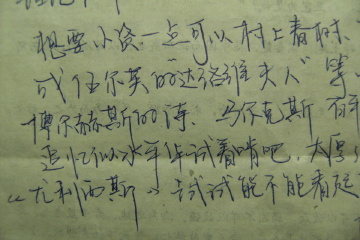 想要小资一点可以村上春树、
或伍尔芙的达洛维夫人”等
博尔赫斯的诗. 马尔克斯 百年
追忆似水年华试着啃吧,太厚
“尤利西斯”试试能不能看